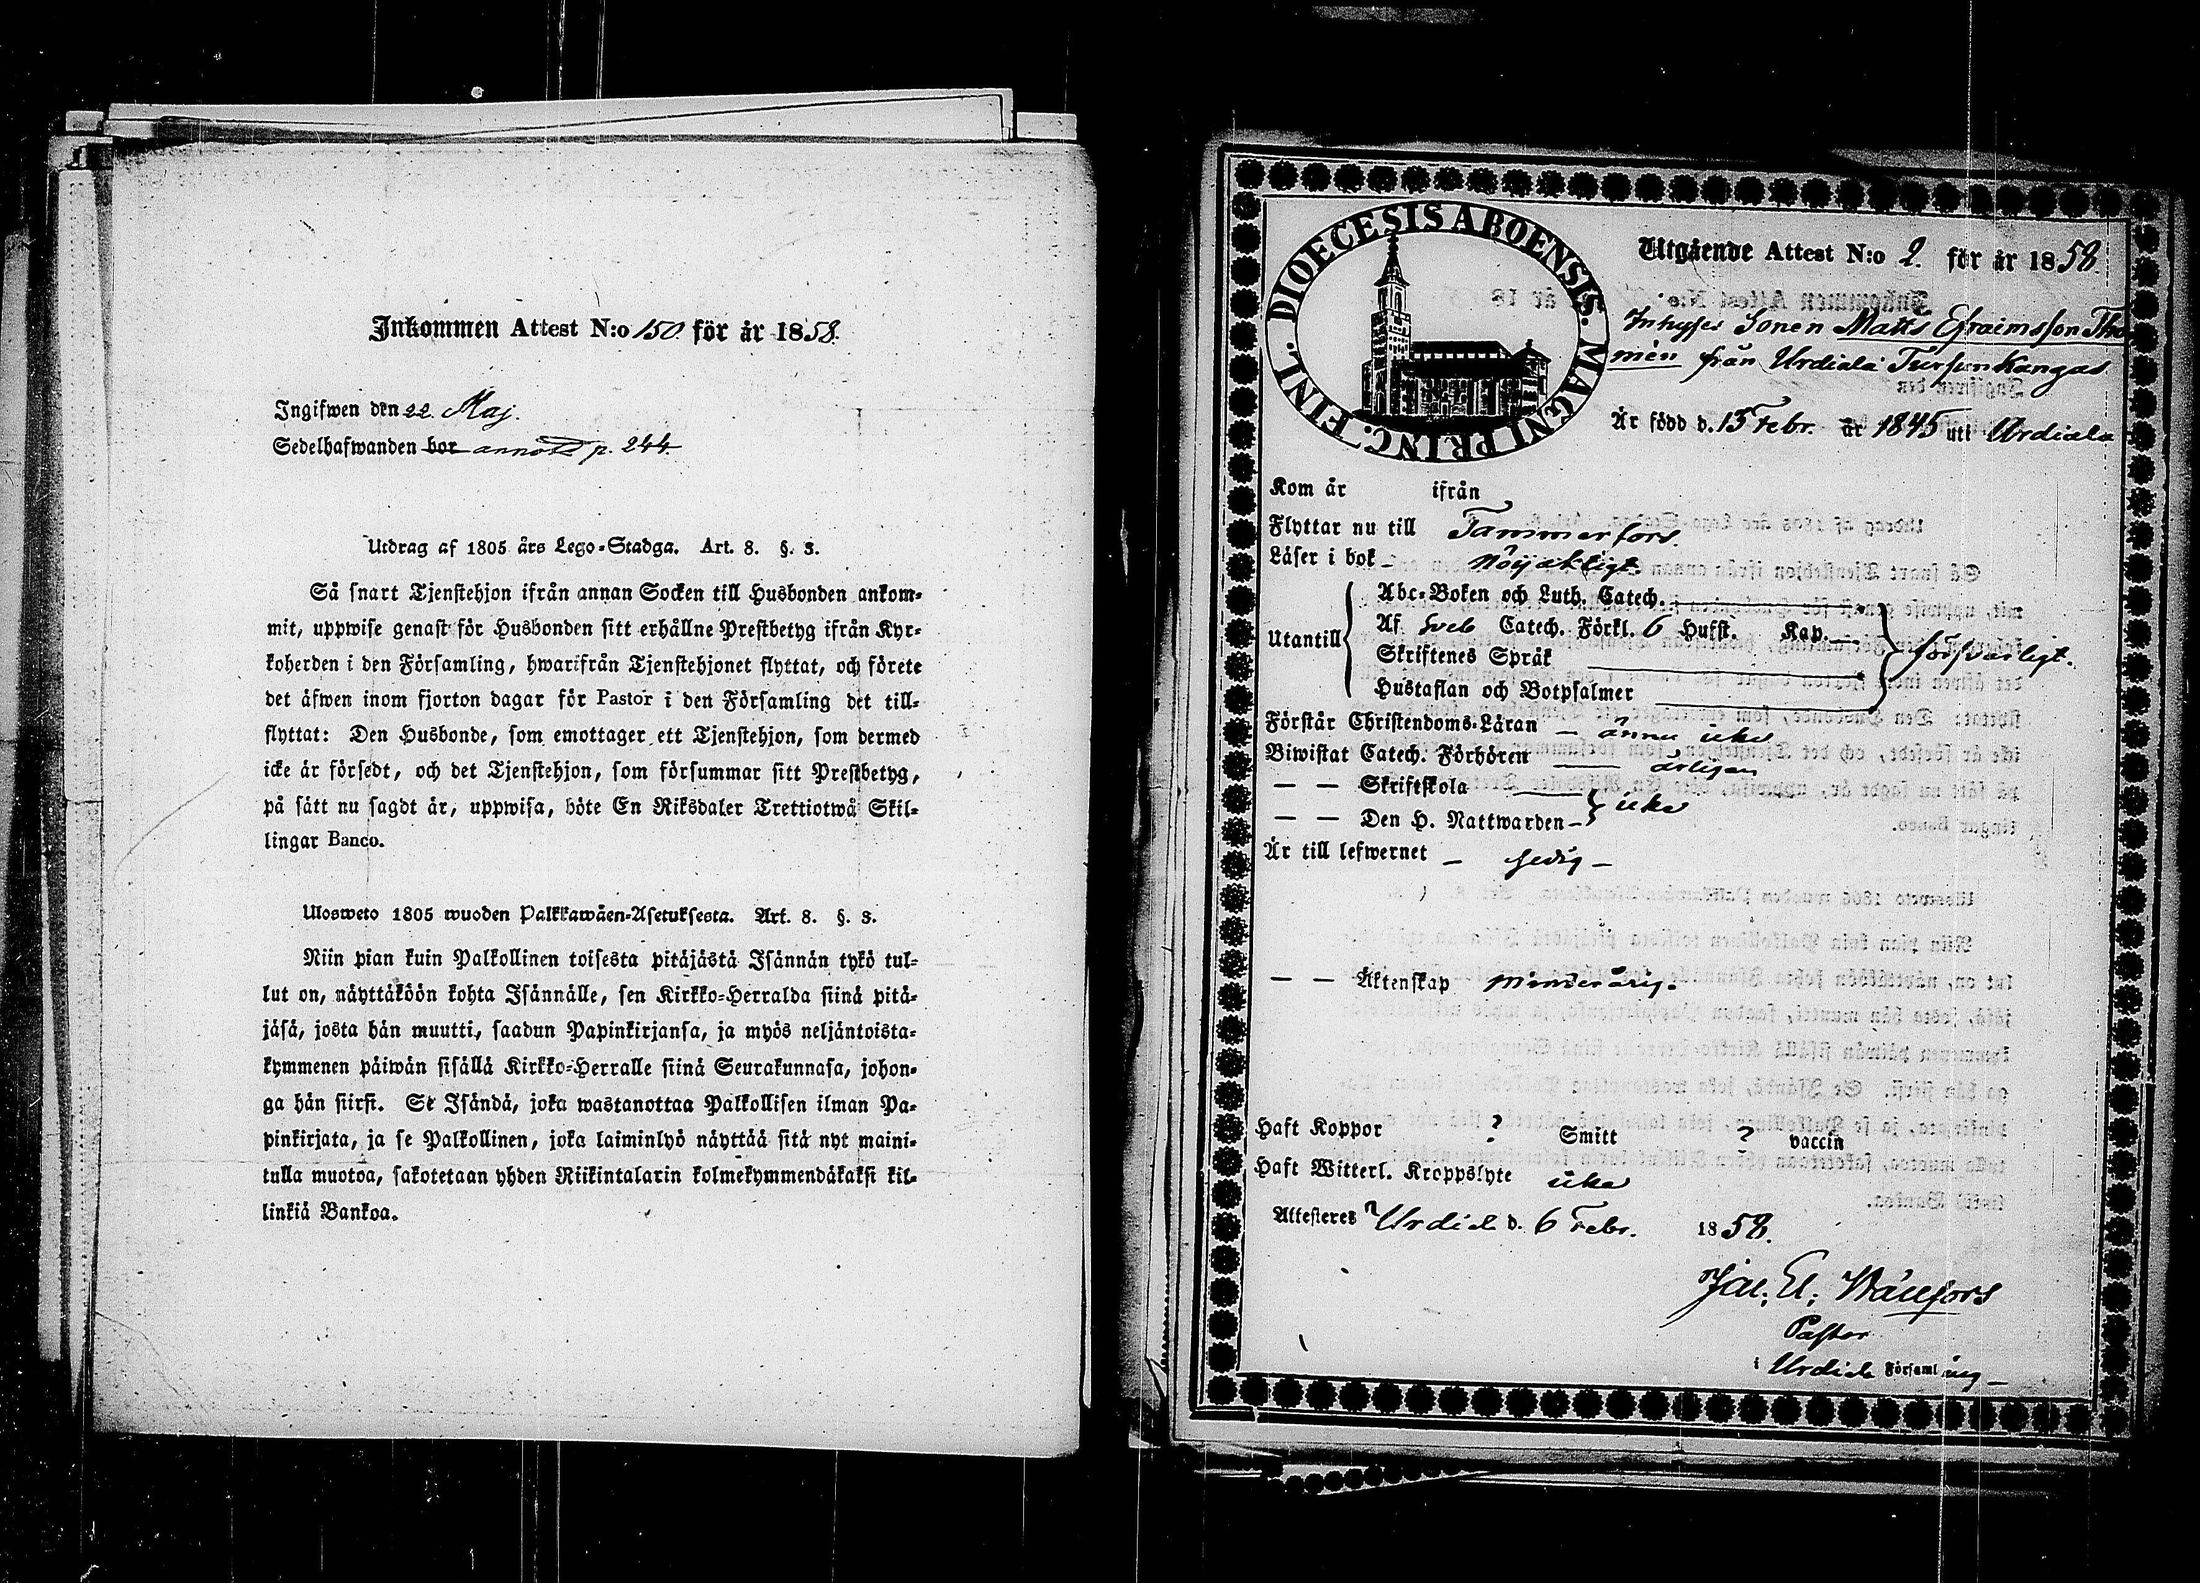 Inkommen Attest N:o 150. för år 1858.
Ingifwen den 22. Maj.
Sedelhafwanden bor annot. p. 244
Utdrag af 1805 års Lego-Stadga. Art. 8. §. 3.
Så snart Tjenstehjon ifrån annan Socken till Husbonden ankom-
mit, uppwise genast för Husbonden sitt erhållne Prestbetyg ifrån Kyr-
koherden i den Församling, hwarifrån Tjenstehjonet flyttat, och förete
det äfwen inom fjorton dagar för Pastor i den Församling det till-
flyttat: Den Husbonde, som emottager ett Tjenstehjon, som dermed
icke är försedt, och det Tjenstehjon, som försummar sitt Prestbetyg,
på sätt nu sagdt är, uppwisa, böte En Riksdaler Trettiotwå Skil-
lingar Banco.
Ulosweto 1805 wuoden Palkkawäen-Asetuksesta. Art. 8. §. 3.
Niin pian kuin Palkollinen toisesta pitäjästä Isännän tykö tul-
lut on, näyttäköön kohta Isännälle, sen Kirkko-Herralda siinä pitä-
jäsä, josta hän muutti, saadun Papinkirjansa, ja myös neljäntoista-
kymmenen päiwän sisällä Kirkko-Herralle siinä Seurakunnasa, johon-
ga hän siirsi. Se Isändä, joka wastanottaa Palkollisen ilman Pa-
pinkirjata, ja se Palkollinen, joka laiminlyö näyttää sitä nyt maini-
tulla muotoa, sakotetaan yhden Riikintalarin kolmekymmendäkaksi kil-
linkiä Bankoa.
DIOECESIS ABOENSIS. MAGNI PRINC. FINL.
Utgående Attest N:o 2. för år 1858.
Inhyses Sonen Matts Efraimsson Tho
mén från Urdiala Tursunkangas
Är född d. 13 Febr. år 1845 uti Urdiala
Kom år ifrån
Flyttar nu till Tammerfors.
Läser i bok - nöjaktigt.
Utantill
Abc-Boken och Luth. Catech.
Af Sveb Catech. Förkl. 6 Hufst. Kap.
Skriftenes Språk
Hustaflan och Botpsalmer
försvarligt.
Förstår Christendoms-Läran - ännu icke
Biwistat Catech. Förhören - årligen
— — Skriftskola
— — Den H. Nattwarden - icke
Är till lefwernet - sedig -
— — Äktenskap minderårig.
Haft Koppor ? Smitt ? vaccin
Haft Witterl. Kroppslyte icke
Attesteres Urdiala d. 6 Febr. 1858.
Pastor
i Urdiala Församling -